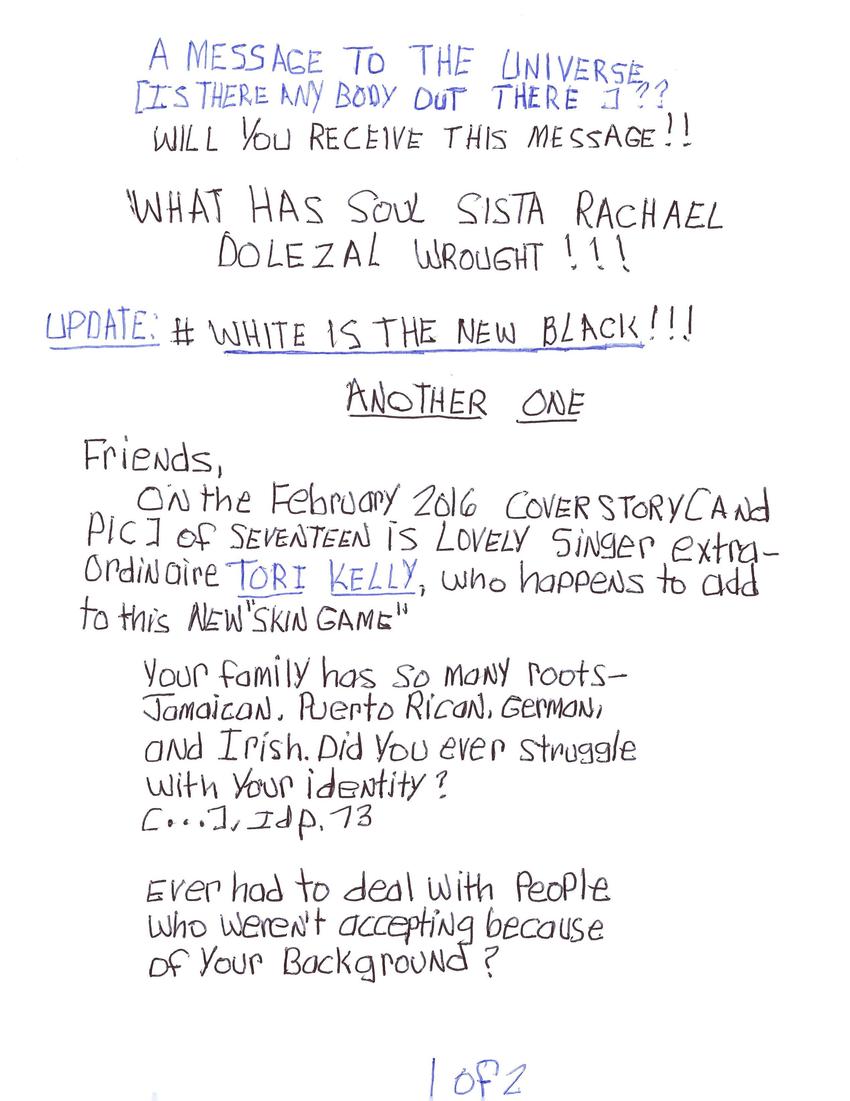 A MESSAGE TO THE UNIVERSE
[IS THERE ANY BODY OUT THERE ]??
WILL YOU RECEIVE THIS MESSAGE!!
WHAT HAS SOUL SISTA RACHAEL
DOLEZAL WROUGHT !!!
UPDATE: # WHITE IS THE NEW BLACK!!!
ANOTHER ONE
Friends,
ON the February 2016 COVER STORY[AND
PIC] of SEVENTEEN is LOVELY Singer extra-
ordinaire TORI KELLY, who happens to add
to this NEW "SKIN GAME"
Your family has so many roots-
Jamaican, Puerto Rican, German,
and Irish. Did you ever struggle
with your identity?
[...], Id p. 73
Ever had to deal with People
who weren't accepting because
of Your Background?
1 of 2